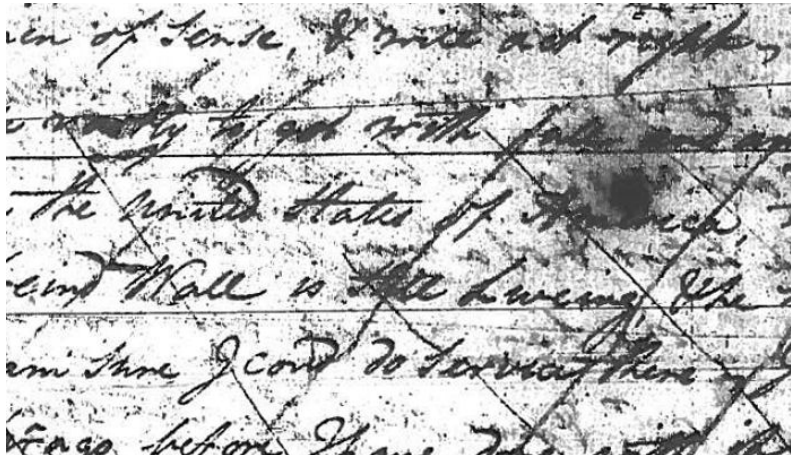 of Sense, & will act right,
ready to act with
the United States of America,
Wall is still Liveing, & he
am Sure I cou'd do Service there
ago, before I have done with it